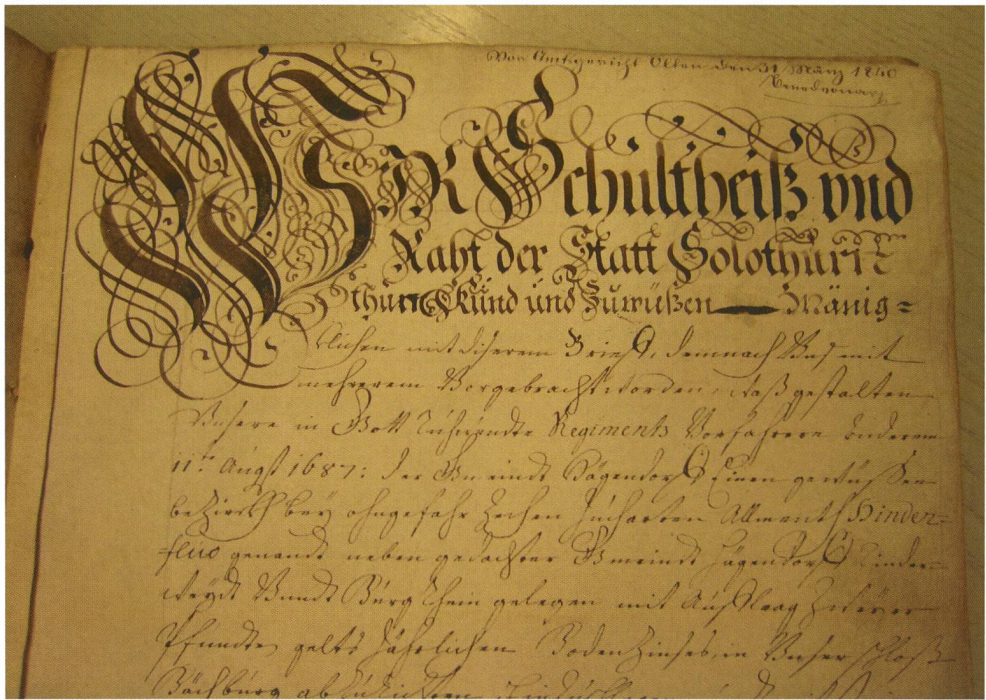 Von Amtsgericht Olten den 31 März 1840
WIR Schultheiß vnd
Raht der Statt Solothurn
thun Kund und Zuwüßen Mänig=
klichen mit diserem Brieff, demnach Unß mit
mehrerem Vorgebracht worden, waß gestalten
Unsere in Gott Ruhwendte Regiments Vorfahrere under
11.ten Augst 1687: der Gmeindt Hägendorff Einen gewüssen
bezirckh bey ohngefahr Zechen Jucharten Allmenth Hinden=
flüo genandt neben gedachter Gmeindt Hägendorff Rinder=
weydt Undt Bürg Rhein gelegen mit Aufflaag Zweyer
Pfundten gelts Jährlichen Bodenzinses, in Unser Schloß
Bächburg